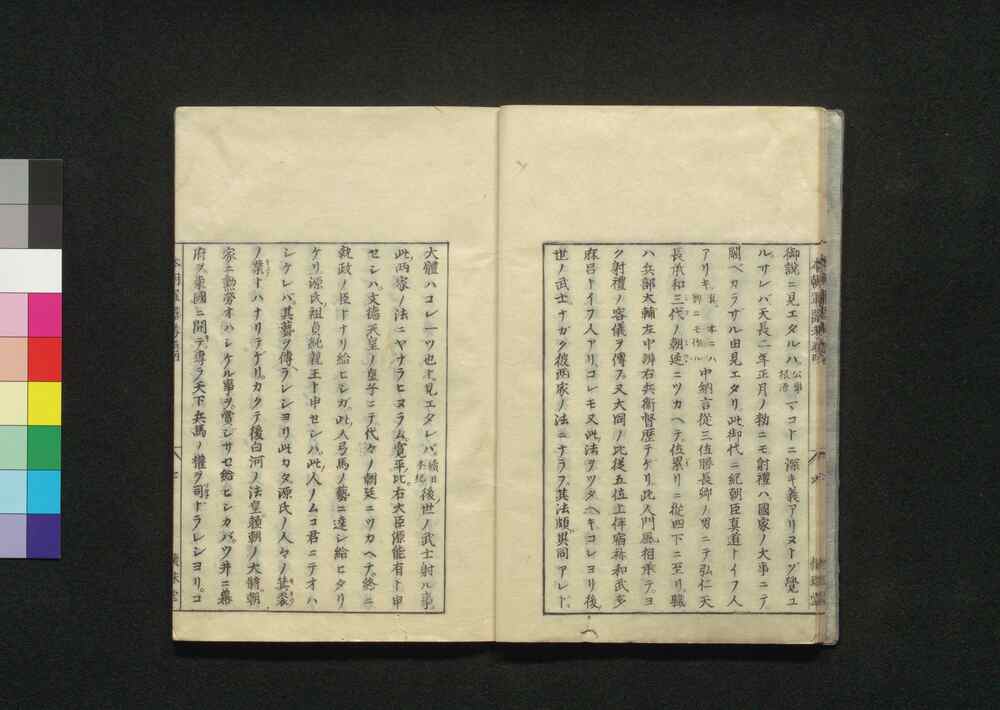 御説ニ見エタルハ 公事根源 マコトニ深キ義アリヌトソ覺ユ
ルサレバ天長二年正月ノ勅ニモ射禮ハ國家ノ大事ニテ
闕ベカラサル由見エタリ此御代ニ紀朝臣眞道トイフ人
アリキ 本ニハ 中納言從三位勝長卿ノ男ニテ弘仁天
長承和三代ノ朝廷ニツカヘテ位累リニ從四下ニ至リ職
ハ兵部太輔左中辨右兵衛督歴テケリ此人門風相承テヨ
ク射禮ノ容儀ヲ傳フ又大同ノ比從五位上伴宿祢和武多
麻呂トイフ人アリコレモ又此法ヲツタヘキコレヨリ後
世ノ武士ナガク彼兩家ノ法ニナラフ其法頗異同アレド
大體ハコレ一ツ也ト見エタレバ 續日本紀 後世ノ武士射ル事
此兩家ノ法ニヤナラヒヌラム寛平ノ比右大臣源能有ト申
セシハ文德天皇ノ皇子ニテ代々ノ朝廷ニツカヘテ終ニ
執政ノ臣トナリ給ヒシガ此人弓馬ノ藝ニ達シ給ヒタリ
ケリ源氏ノ祖貞純親王ト申セシハ此人ノムコ君ニテオハ
シケレバ其藝ヲ傳ラレシヨリ此カタ源氏ノ人々ノ箕裘
ノ業トハナリテゲリカクテ後白河ノ法皇賴朝ノ大將朝
家ニ勲勞オハシケル事ヲ賞シサセ給ヒシカバツ井ニ幕
府ヲ東國ニ開テ專ラ天下兵馬ノ權ヲ司トラレシヨリコ